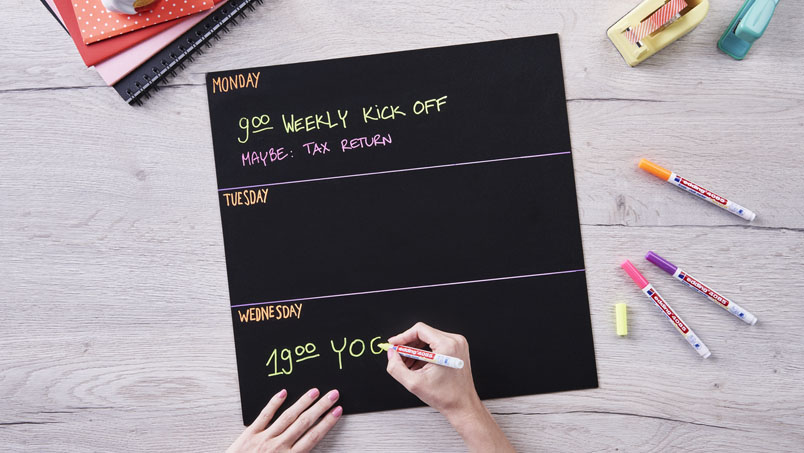 MONDAY
9⁰⁰ WEEKLY KICK OFF
MAYBE: TAX RETURN
TUESDAY
WEDNESDAY
19⁰⁰ YOG
edding 4085
edding 4085
edding 4085